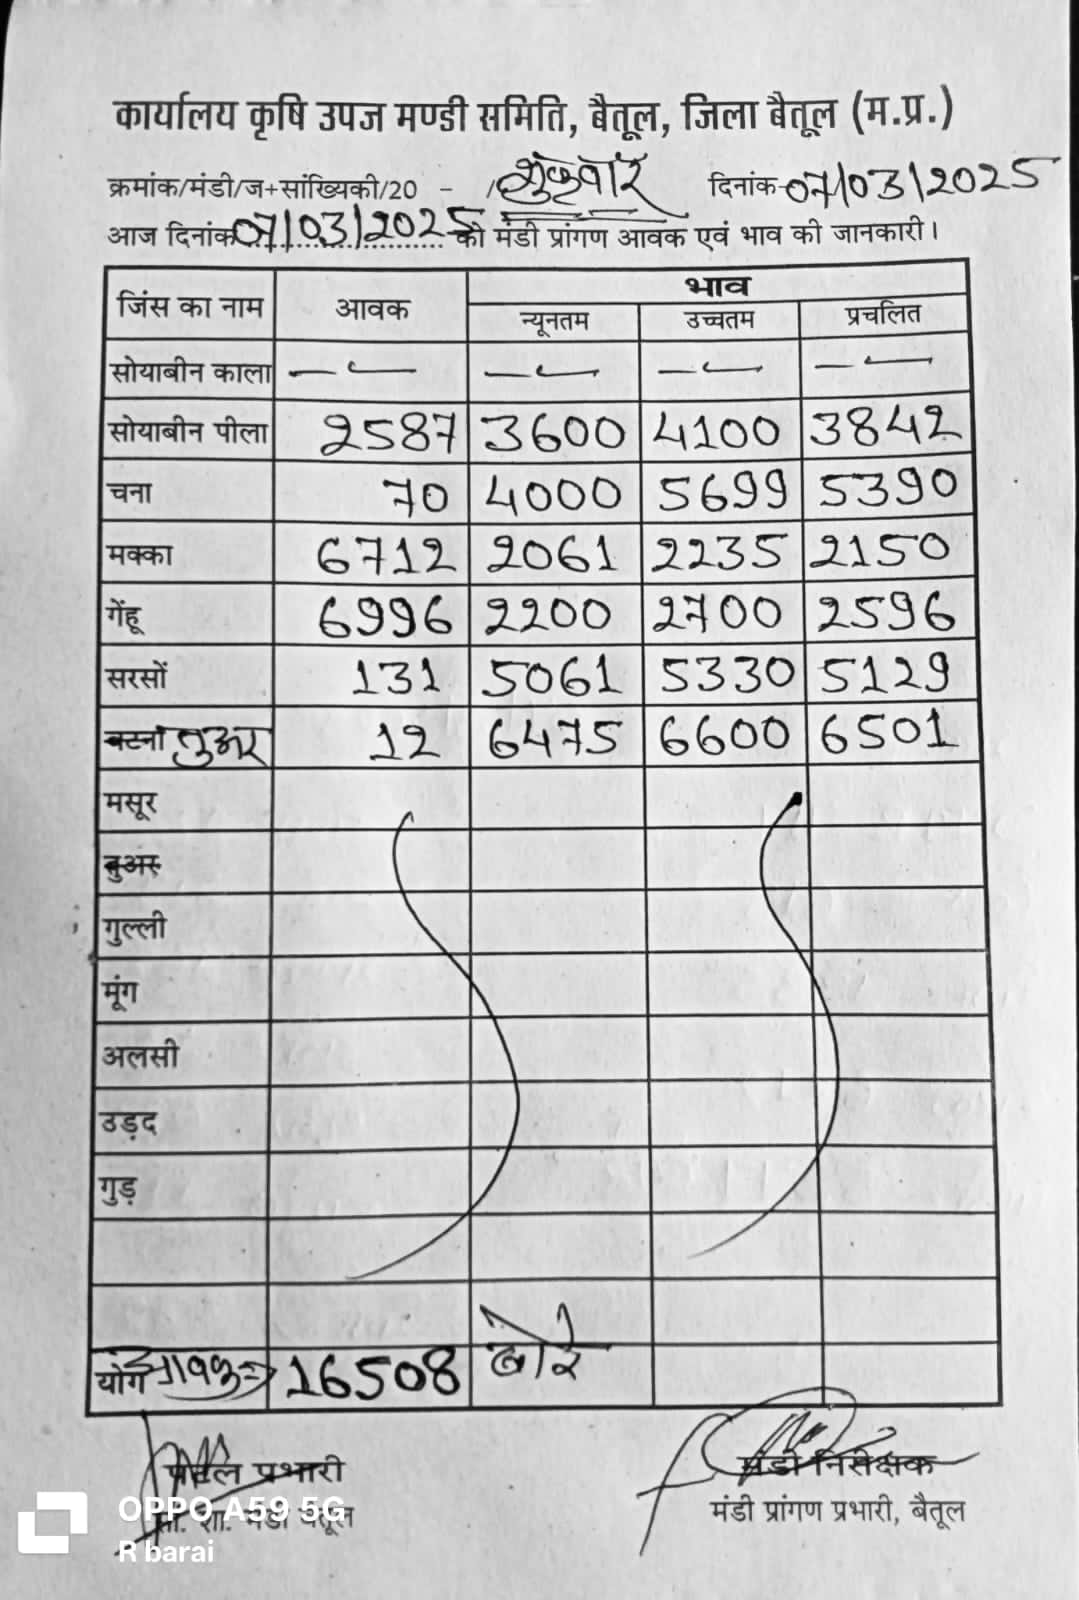 कार्यालय कृषि उपज मण्डी समिति, बैतूल, जिला बैतूल (म.प्र.)
क्रमांक/मंडी/ज+सांख्यिकी/20 - / शुक्रवार दिनांक-07/03/2025
आज दिनांक 07/03/2025 की मंडी प्रांगण आवक एवं भाव की जानकारी।
जिंस का नाम आवक भाव
न्यूनतम उच्चतम प्रचलित
सोयाबीन काला — — — —
सोयाबीन पीला 2587 3600 4100 3842
चना 70 4000 5699 5390
मक्का 6712 2061 2235 2150
गेंहू 6996 2200 2700 2596
सरसों 131 5061 5330 5129
बटना तुअर 12 6475 6600 6501
मसूर
तुअर
गुल्ली
मूंग
अलसी
उड़द
गुड़
योग आवक 16508 बोरे
प्रभारी मंडी निरीक्षक
शा. मंडी बैतूल मंडी प्रांगण प्रभारी, बैतूल
OPPO A59 5G
R barai